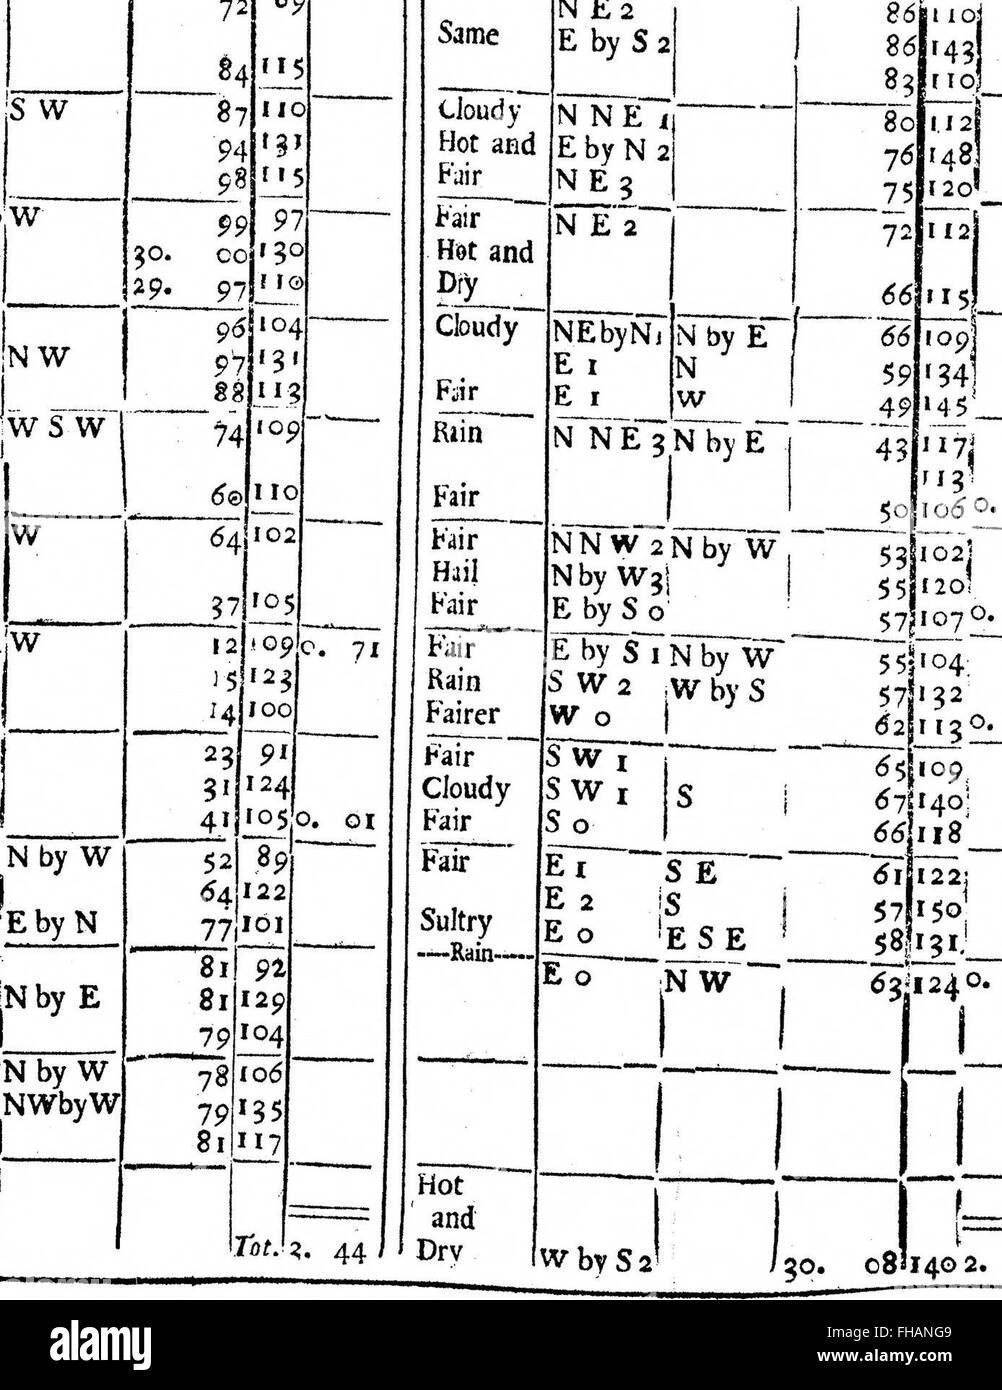 72 69
84 115
S W 87 110
94 131
98 115
W 99 97
30. 00 130
29. 97 110
96 104
N W 97 131
88 113
W S W 74 109
60 110
W 64 102
37 105
W 12 109 0. 71
15 123
14 100
23 91
31 124
41 105 0. 01
N by W 52 89
64 122
E by N 77 101
81 92
N by E 81 129
79 104
N by W 78 106
NWbyW 79 135
81 117
Tot. 2. 44
N E 2 86 110
Same E by S 2 86 143
83 110
Cloudy N N E 1 80 112
Hot and E by N 2 76 148
Fair N E 3 75 120
Fair N E 2 72 112
Hot and
Dry 66 115
Cloudy NEbyN1 N by E 66 109
E 1 N 59 134
Fair E 1 W 49 145
Rain N N E 3 N by E 43 117
113
Fair 50 106 0.
Fair N N W 2 N by W 53 102
Hail N by W3 55 120
Fair E by S 0 57 107 0.
Fair E by S 1 N by W 55 104
Rain S W 2 W by S 57 132
Fairer W 0 62 113 0.
Fair S W 1 65 109
Cloudy S W 1 S 67 140
Fair S 0 66 118
Fair E 1 S E 61 122
E 2 S 57 150
Sultry E 0 E S E 58 131
----Rain-----
E 0 N W 63 124 0.
Hot
and
Dry W by S 2 30. 08 140 2.
alamy
Image ID: FHANG9
www.alamy.com